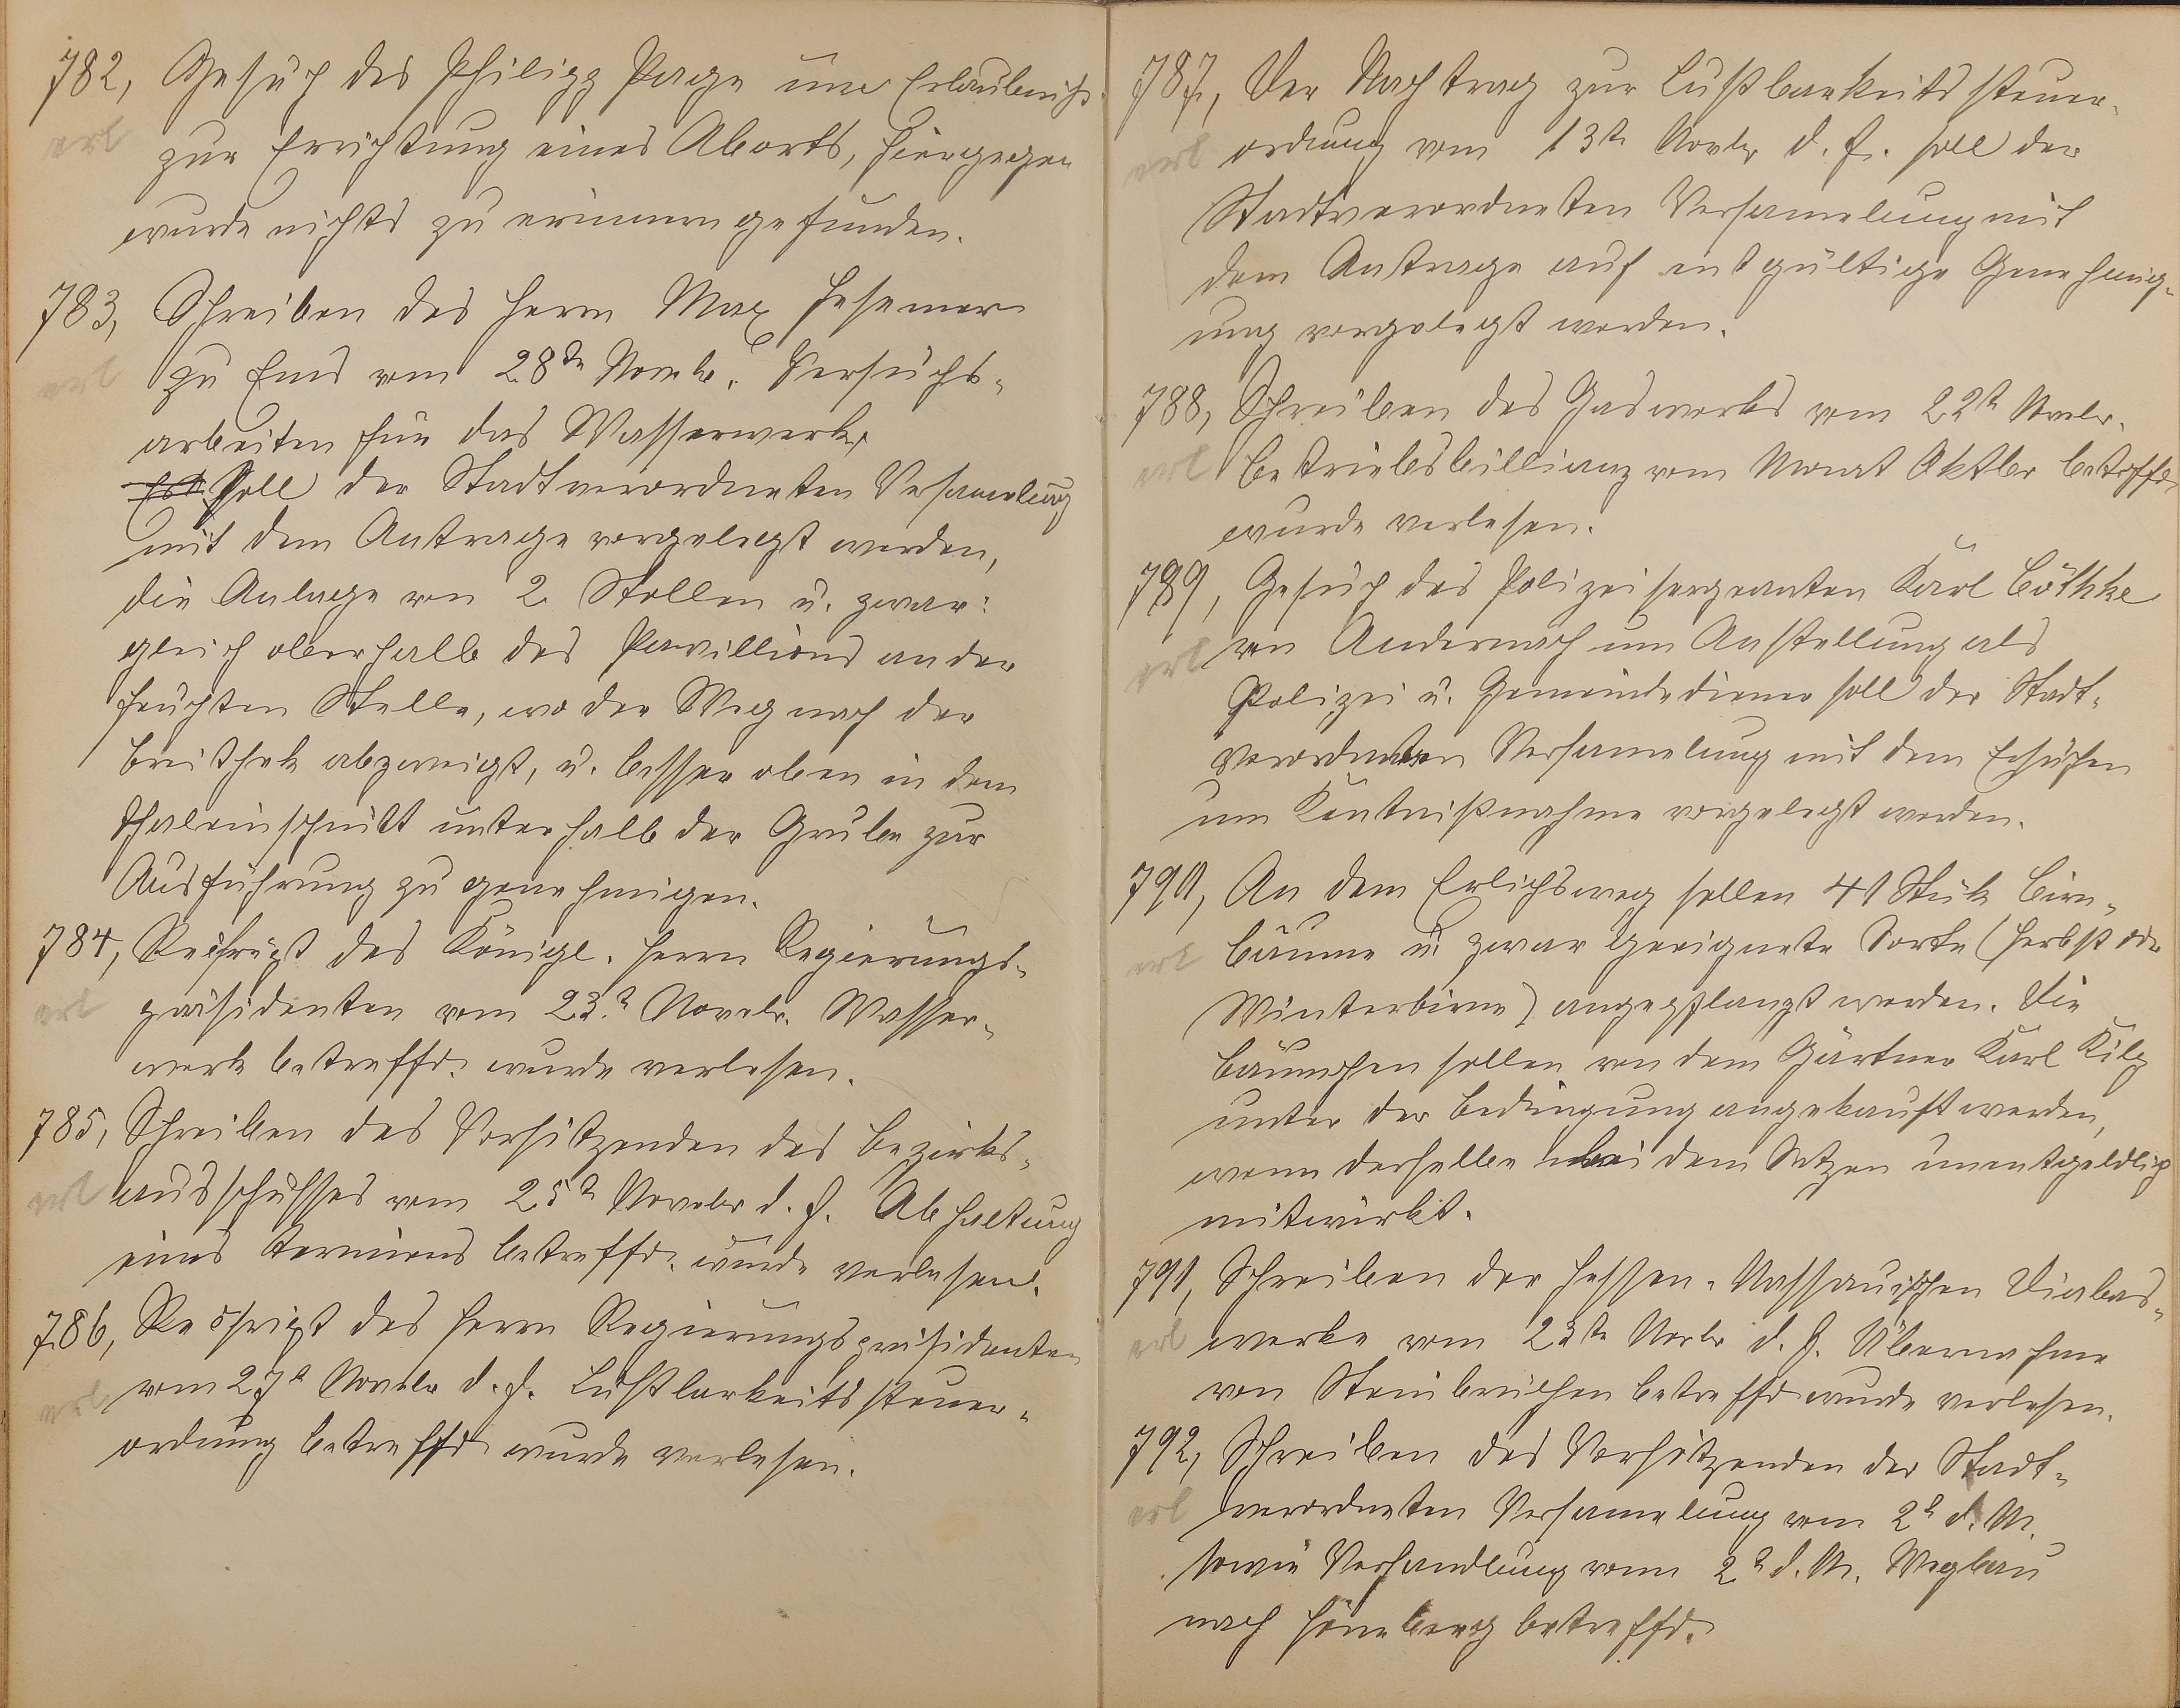 782, Gesuch des Philipp Page um Erlaubniß
erl zur Errichtung eines Aborts, hiergegen
wurde nichts zu erinnern gefunden.
783, Schreiben des Herrn Max Hesemer
erl zu Ems vom 28ten Novbr. Versuchs-
arbeiten für das Wasserwerk,
Es soll der Stadtverordneten Versamelung
mit dem Antrage vorgelegt werden,
die Anlage von 2 Stollen u. zwar:
gleich oberhalb des Pavillions an der
feuchten Stelle, wo der Weg nach der
abzweigt, u. besser oben in dem
Thaleinschnitt unterhalb der Grube zur
Ausführung zu genehmigen.
784, Rescript des Königl. Herrn Regierungs-
erl präsidenten vom 23t Novebr. Wasser-
werk betreffd. wurde verlesen.
785, Schreiben des Vorsitzenden des Bezirks-
erl ausschusses vom 25t Novebr d. J. Abhaltung
eines Termiens betreffd. wurde verlesen.
786, Rescript des Herrn Regierungspräsidenten
erl vom 27t Novebr d. J. Lustbarkeitssteuer-
ordnung betreffd wurde verlesen.
787, Der Nachtrag zur Lustbarkeitssteuer-
erl ordnung vom 13te Novbr d. J. soll der
Stadtverordneten Versamelung mit
dem Antrage auf entgültige Genehmig-
ung vorgelegt werden.
788, Schreiben des Gaswerks vom 22t Novbr.
erl Betriebsbillianz vom Monat Oktbr betrffd
wurde verlesen.
789, Gesuch des Polizeisergeanten Karl Böthke
erl von Andernach um Anstellung als
Polizei u. Gemeindediener soll der Stadt-
verordneten Versamelung mit dem Ersuchen
um Kentnißnahme vorgelegt werden.
790, An dem Erlichsweg sollen 41 Stück Birn-
erl bäume u. zwar geeignete Sorte (Herbst oder
Winterbirne) angepflanzt werden. Die
Bäumchen sollen von dem Gärtner Karl Kilp
unter der Bedingung angekauft werden,
wenn derselbe bei dem Setzen unentgeldlich
mitwirkt.
791, Schreiben der Hessen-Nassauischen Diabas-
erl werke vom 23te Novbr d. J. Übernahme
von Steinbrüchen betreffd wurde verlesen.
792, Schreiben des Vorsitzenden der Stadt-
erl verordneten Versamelung vom 2t d. M.
sowie Verhandlung vom 2t d. M. Wegbau
nach Hömberg betreffd.